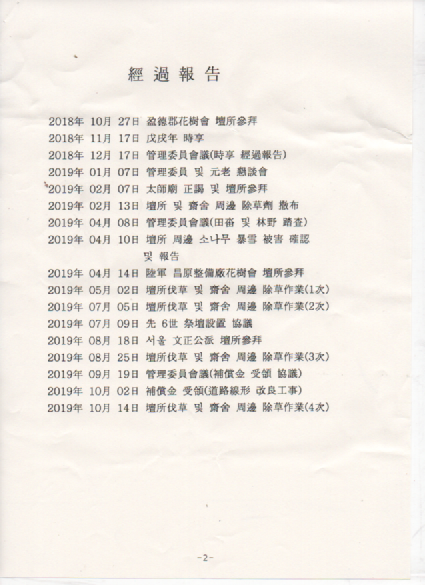 經過報告
2018年 10月 27日 盈德郡花樹會 壇所參拜
2018年 11月 17日 戊戌年 時享
2018年 12月 17日 管理委員會議(時享 經過報告)
2019年 01月 07日 管理委員 및 元老 懇談會
2019年 02月 07日 太師廟 正謁 및 壇所參拜
2019年 02月 13日 壇所 및 齋舍 周邊 除草劑 撒布
2019年 04月 08日 管理委員會議(田畓 및 林野 踏査)
2019年 04月 10日 壇所 周邊 소나무 暴雪 被害 確認
및 報告
2019年 04月 14日 陸軍 昌原整備廠花樹會 壇所參拜
2019年 05月 02日 壇所伐草 및 齋舍 周邊 除草作業(1次)
2019年 07月 05日 壇所伐草 및 齋舍 周邊 除草作業(2次)
2019年 07月 09日 先 6世 祭壇設置 協議
2019年 08月 18日 서울 文正公派 壇所參拜
2019年 08月 25日 壇所伐草 및 齋舍 周邊 除草作業(3次)
2019年 09月 19日 管理委員會議(補償金 受領 協議)
2019年 10月 02日 補償金 受領(道路線形 改良工事)
2019年 10月 14日 壇所伐草 및 齋舍 周邊 除草作業(4次)
-2-